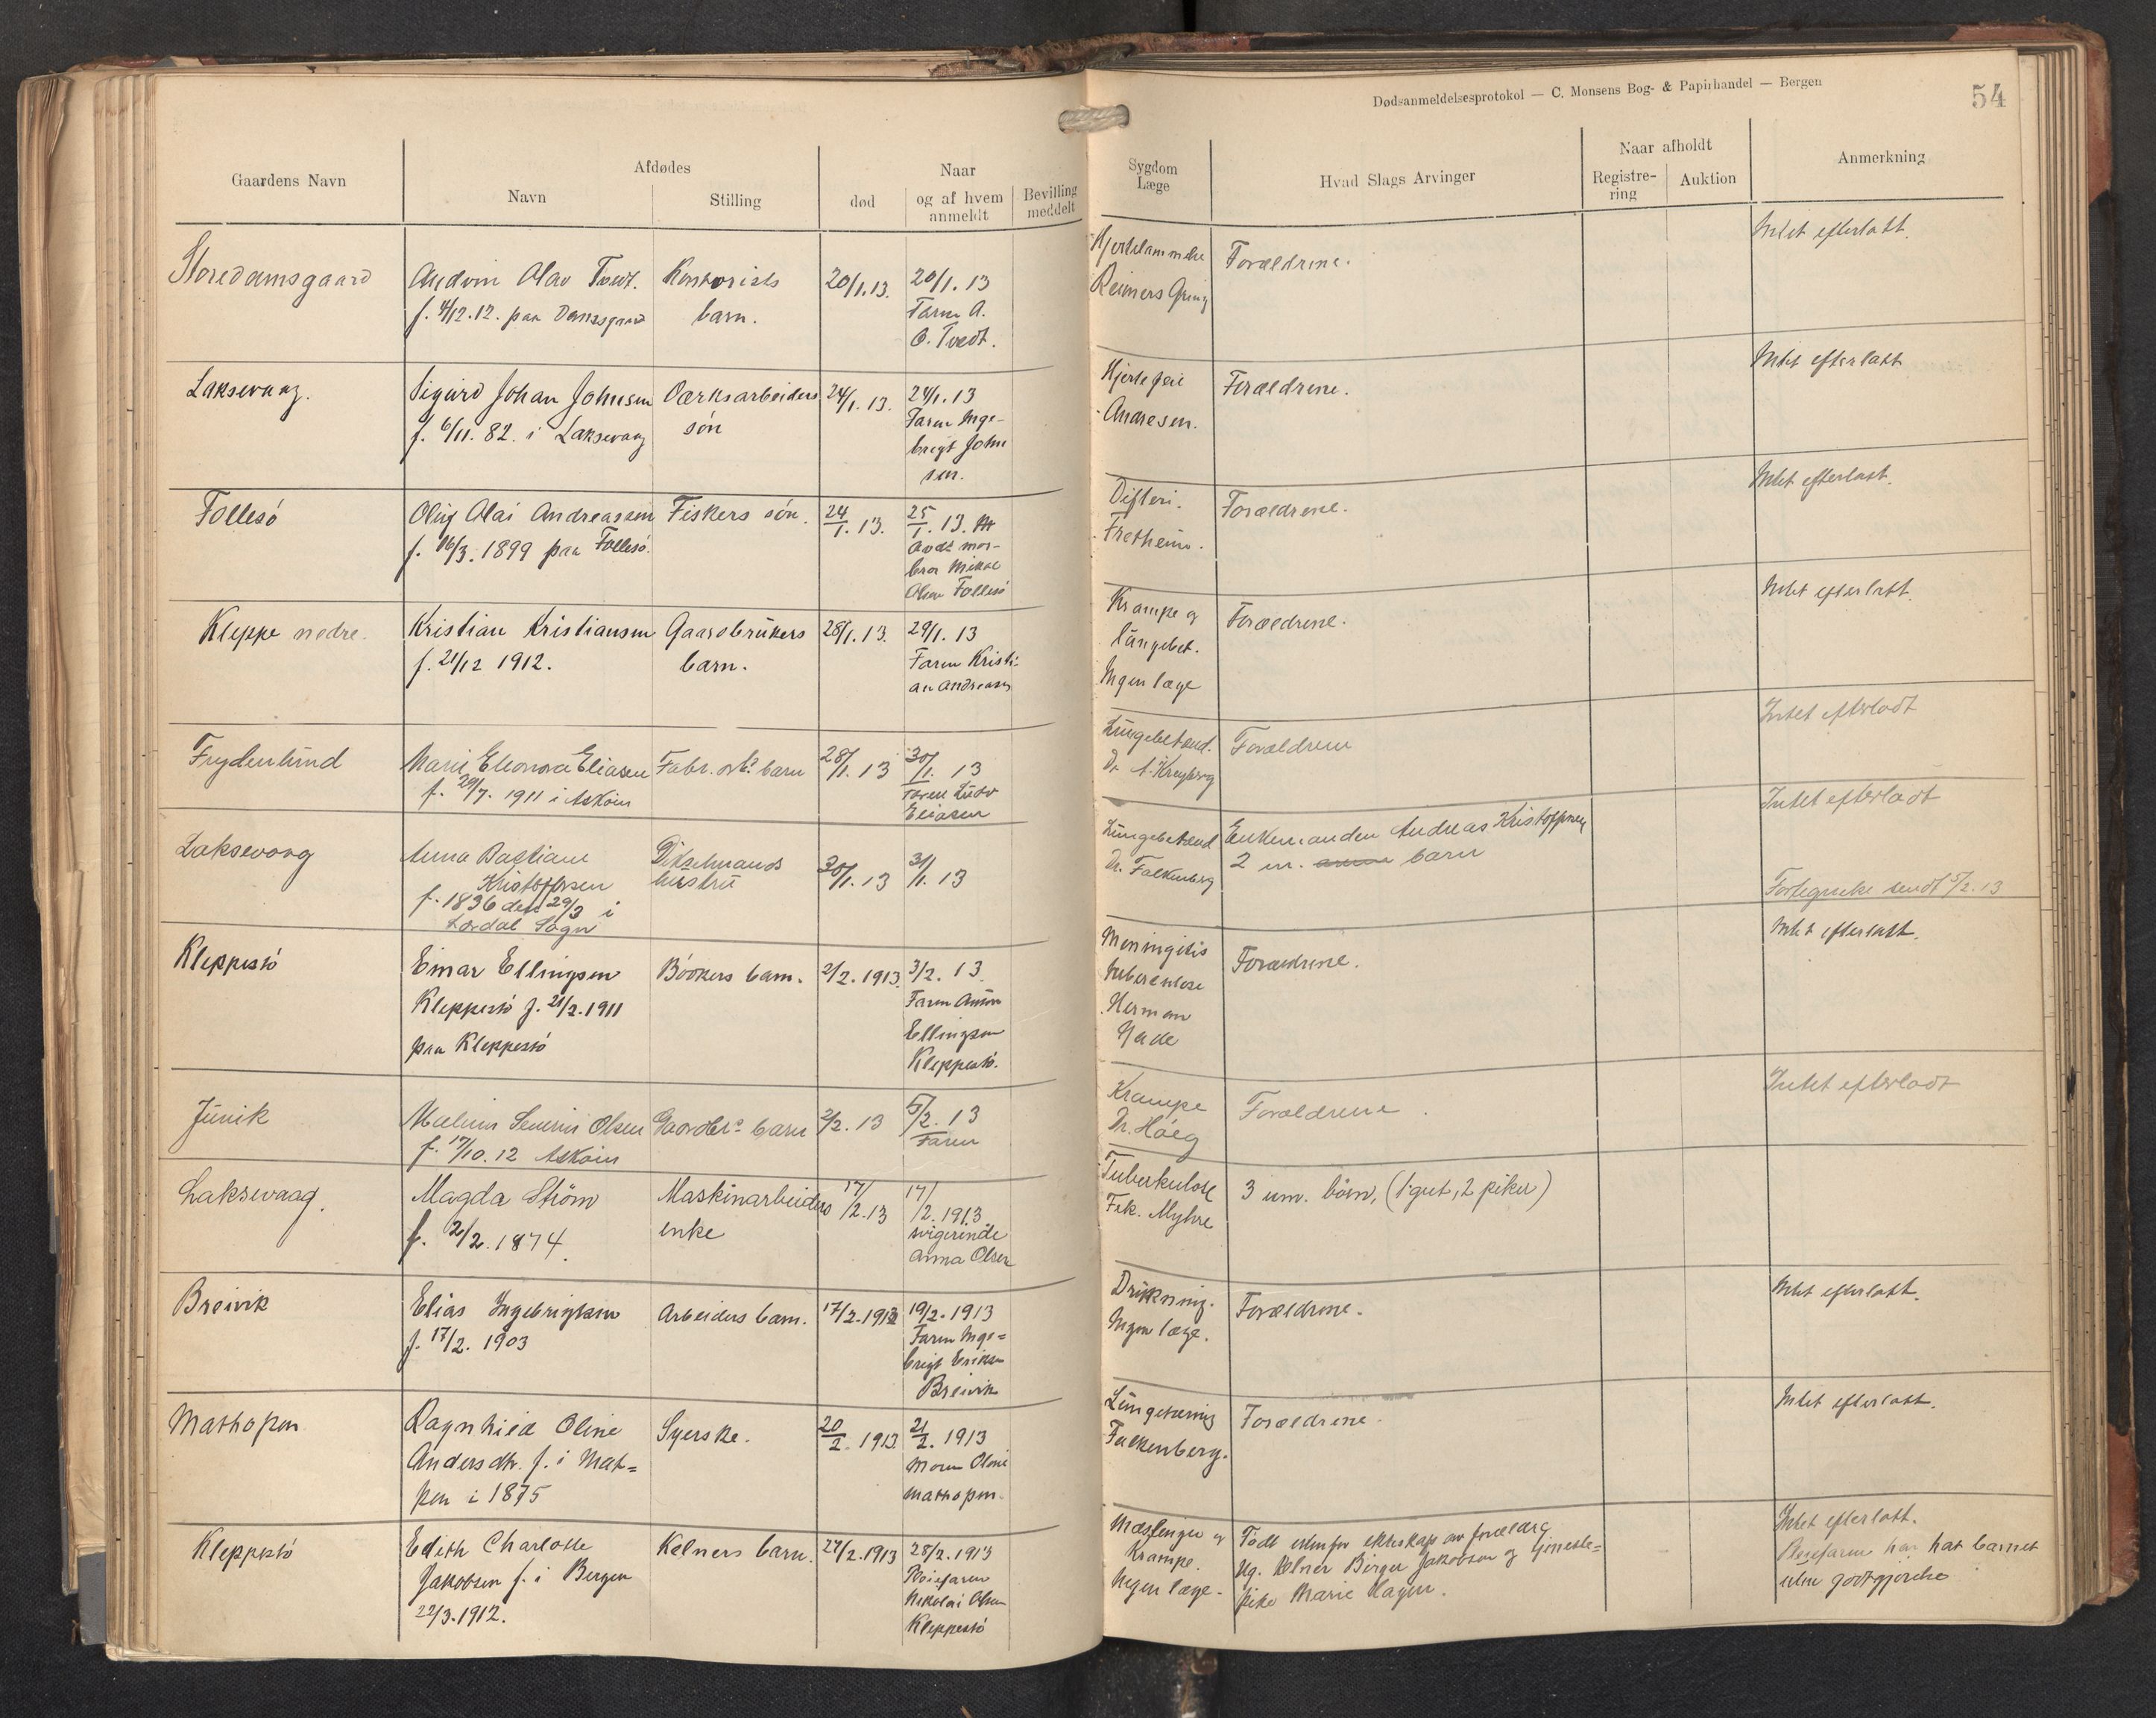 Dødsanmeldelsesprotokol — C. Monsens Bog- & Papirhandel — Bergen
54
Gaardens Navn
Afdødes
Navn
Stilling
død
Naar
og af hvem
anmeldt
Bevilling
meddelt
Sygdom
Læge
Hvad Slags Arvinger
Naar afholdt
Registre-
ring
Auktion
Anmerkning
Storedamsgaard
Olav Tvedt.
f. 4/12.12. paa Damsgaard
Kontorists
barn.
20/1.13.
20/1.13
Faren A.
O. Tvedt.
Hjertelammelse
Reimers
Forældrene.
Intet efterlatt.
Laksevaag.
Sigurd Johan Johnsen
f. 6/11.82. i Laksevaag
Værksarbeiders
søn
24/1.13.
24/1.13
Faren Inge-
brigt John
sen.
Hjertefeil
Andresen.
Forældrene.
Intet efterlatt
Follesö
Olai Andreassen
f. 16/3.1899 paa Follesö.
Fiskers sön.
24/1.13.
25/1.13.
Avdt mor-
bror Mikal
Olsen Follesö
Difteri.
Fretheim.
Forældrene.
Intet efterlatt.
Kleppe nedre.
Kristian Kristiansen
f. 21/12 1912.
Gaardbrukers
barn.
28/1.13.
29/1.13
Faren Kristi-
an Andreasen
Krampe og
lungebet.
Ingen læge
Forældrene.
Intet efterlatt.
Frydenlund
Marie Eleonora Eliasen
f. 29/7. 1911 i Asköen
Fabr. arb.s barn
28/1.13
30/1.13
Faren Ludv
Eliasen
Lungebetænd.
Dr. Kreyberg
Forældrene
Intet efterladt
Laksevaag
Anna Bastiane
Kristoffersen
f. 1836 den 29/3 i
Lærdal Sogn
hustru
30/1.13
31/1.13
Lungebetænd
Dr. Falkenberg
Enkemanden Andreas Kristoffersen
2 m. barn
Intet efterladt
Fortegnelse sendt 5/2.13
Kleppestö
Einar Ellingsen
Kleppestö f. 21/2.1911
paa Kleppestö
Bödkers barn.
2/2.1913.
3/2.13.
Faren Anton
Ellingsen
Kleppestö.
Meningitis
tuberculose
Herman
Gade
Forældrene.
Intet efterlatt.
Juvik
Severin Olsen
f. 17/10.12 Asköen
Gaardbr.s barn
2/2.13
5/2.13
Faren
Krampe
Dr. Höeg
Forældrene.
Intet efterladt
Laksevaag.
Magda Ström
f. 2/2.1874.
Maskinarbeiders
enke
17/2.13
17/2.1913
svigerinde
Anna Olsen
Tuberkulose
Frk. Myhre
3 um. börn, (1 gut, 2 piker)
Breivik
Elias Ingebrigtsen
f. 17/2. 1903
Arbeiders barn.
17/2.1913
19/2.1913
Faren Inge=
brigt Eriksen
Breivik
Drukning.
Ingen læge.
Forældrene.
Intet efterlatt.
Mathopen
Ragnhild Oline
Andersdtr. f. i Mat=
pen i 1875
Syerske.
20/2.1913
21/2.1913
Moren Oline
Mathopen.
Lungetæring
Falkenberg.
Forældrene.
Intet efterlatt.
Kleppestö
Edith Charlotte
Jakobsen f. i Bergen
22/3.1912.
Kelners barn.
27/2.1913
28/2.1913
Pleiefaren
Nikolai Olsen
Kleppestö
Mæslinger og
Krampe.
Ingen læge.
Födt utenfor ekteskap av forældre
Ug. Kelner Birger Jakobsen og tjeneste=
pike Marie Hagen.
Intet efterlatt.
Pleiefaren har hat barnet
uten godtgjörelse